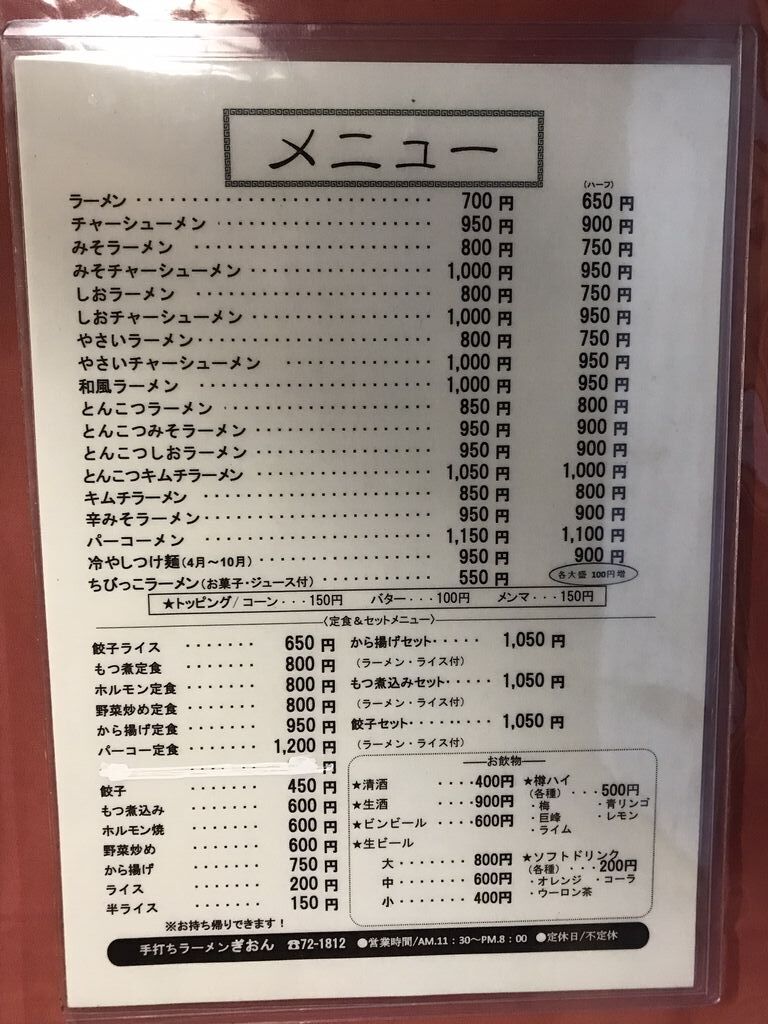 メニュー
(ハーフ)
ラーメン ・・・・・・・・・・ 700 円 650 円
チャーシューメン ・・・・・・・・・・ 950 円 900 円
みそラーメン ・・・・・・・・・・ 800 円 750 円
みそチャーシューメン ・・・・・・・・・・ 1,000 円 950 円
しおラーメン ・・・・・・・・・・ 800 円 750 円
しおチャーシューメン ・・・・・・・・・・ 1,000 円 950 円
やさいラーメン ・・・・・・・・・・ 800 円 750 円
やさいチャーシューメン ・・・・・・・・・・ 1,000 円 950 円
和風ラーメン ・・・・・・・・・・ 1,000 円 950 円
とんこつラーメン ・・・・・・・・・・ 850 円 800 円
とんこつみそラーメン ・・・・・・・・・・ 950 円 900 円
とんこつしおラーメン ・・・・・・・・・・ 950 円 900 円
とんこつキムチラーメン ・・・・・・・・・・ 1,050 円 1,000 円
キムチラーメン ・・・・・・・・・・ 850 円 800 円
辛みそラーメン ・・・・・・・・・・ 950 円 900 円
パーコーメン ・・・・・・・・・・ 1,150 円 1,100 円
冷やしつけ麺(4月～10月) ・・・・・・・・・・ 950 円 900 円
ちびっこラーメン(お菓子・ジュース付) ・・・・・・・・・・ 550 円 各大盛 100円増
★トッピング/ コーン・・・150円 バター・・・100円 メンマ・・・150円
〈定食＆セットメニュー〉
餃子ライス ・・・・・・・ 650 円
もつ煮定食 ・・・・・・・ 800 円
ホルモン定食 ・・・・・・・ 800 円
野菜炒め定食 ・・・・・・・ 800 円
から揚げ定食 ・・・・・・・ 950 円
パーコー定食 ・・・・・・・ 1,200 円
円
餃子 ・・・・・・・ 450 円
もつ煮込み ・・・・・・・ 600 円
ホルモン焼 ・・・・・・・ 600 円
野菜炒め ・・・・・・・ 600 円
から揚げ ・・・・・・・ 750 円
ライス ・・・・・・・ 200 円
半ライス ・・・・・・・ 150 円
※お持ち帰りできます！
から揚げセット・・・・・ 1,050 円
(ラーメン・ライス付)
もつ煮込みセット・・・・・ 1,050 円
(ラーメン・ライス付)
餃子セット・・・・・・・・ 1,050 円
(ラーメン・ライス付)
お飲物
★清酒 ・・・・400円
★生酒 ・・・・900円
★ビンビール ・・・・600円
★生ビール
大・・・・・・・・800円
中・・・・・・・・600円
小・・・・・・・・400円
★樽ハイ
(各種)・・・・500円
・梅 ・青リンゴ
・巨峰 ・レモン
・ライム
★ソフトドリンク
(各種)・・・200円
・オレンジ ・コーラ
・ウーロン茶
手打ちラーメンぎおん ☎72-1812 ●営業時間/AM.11：30～PM.8：00 ●定休日/不定休